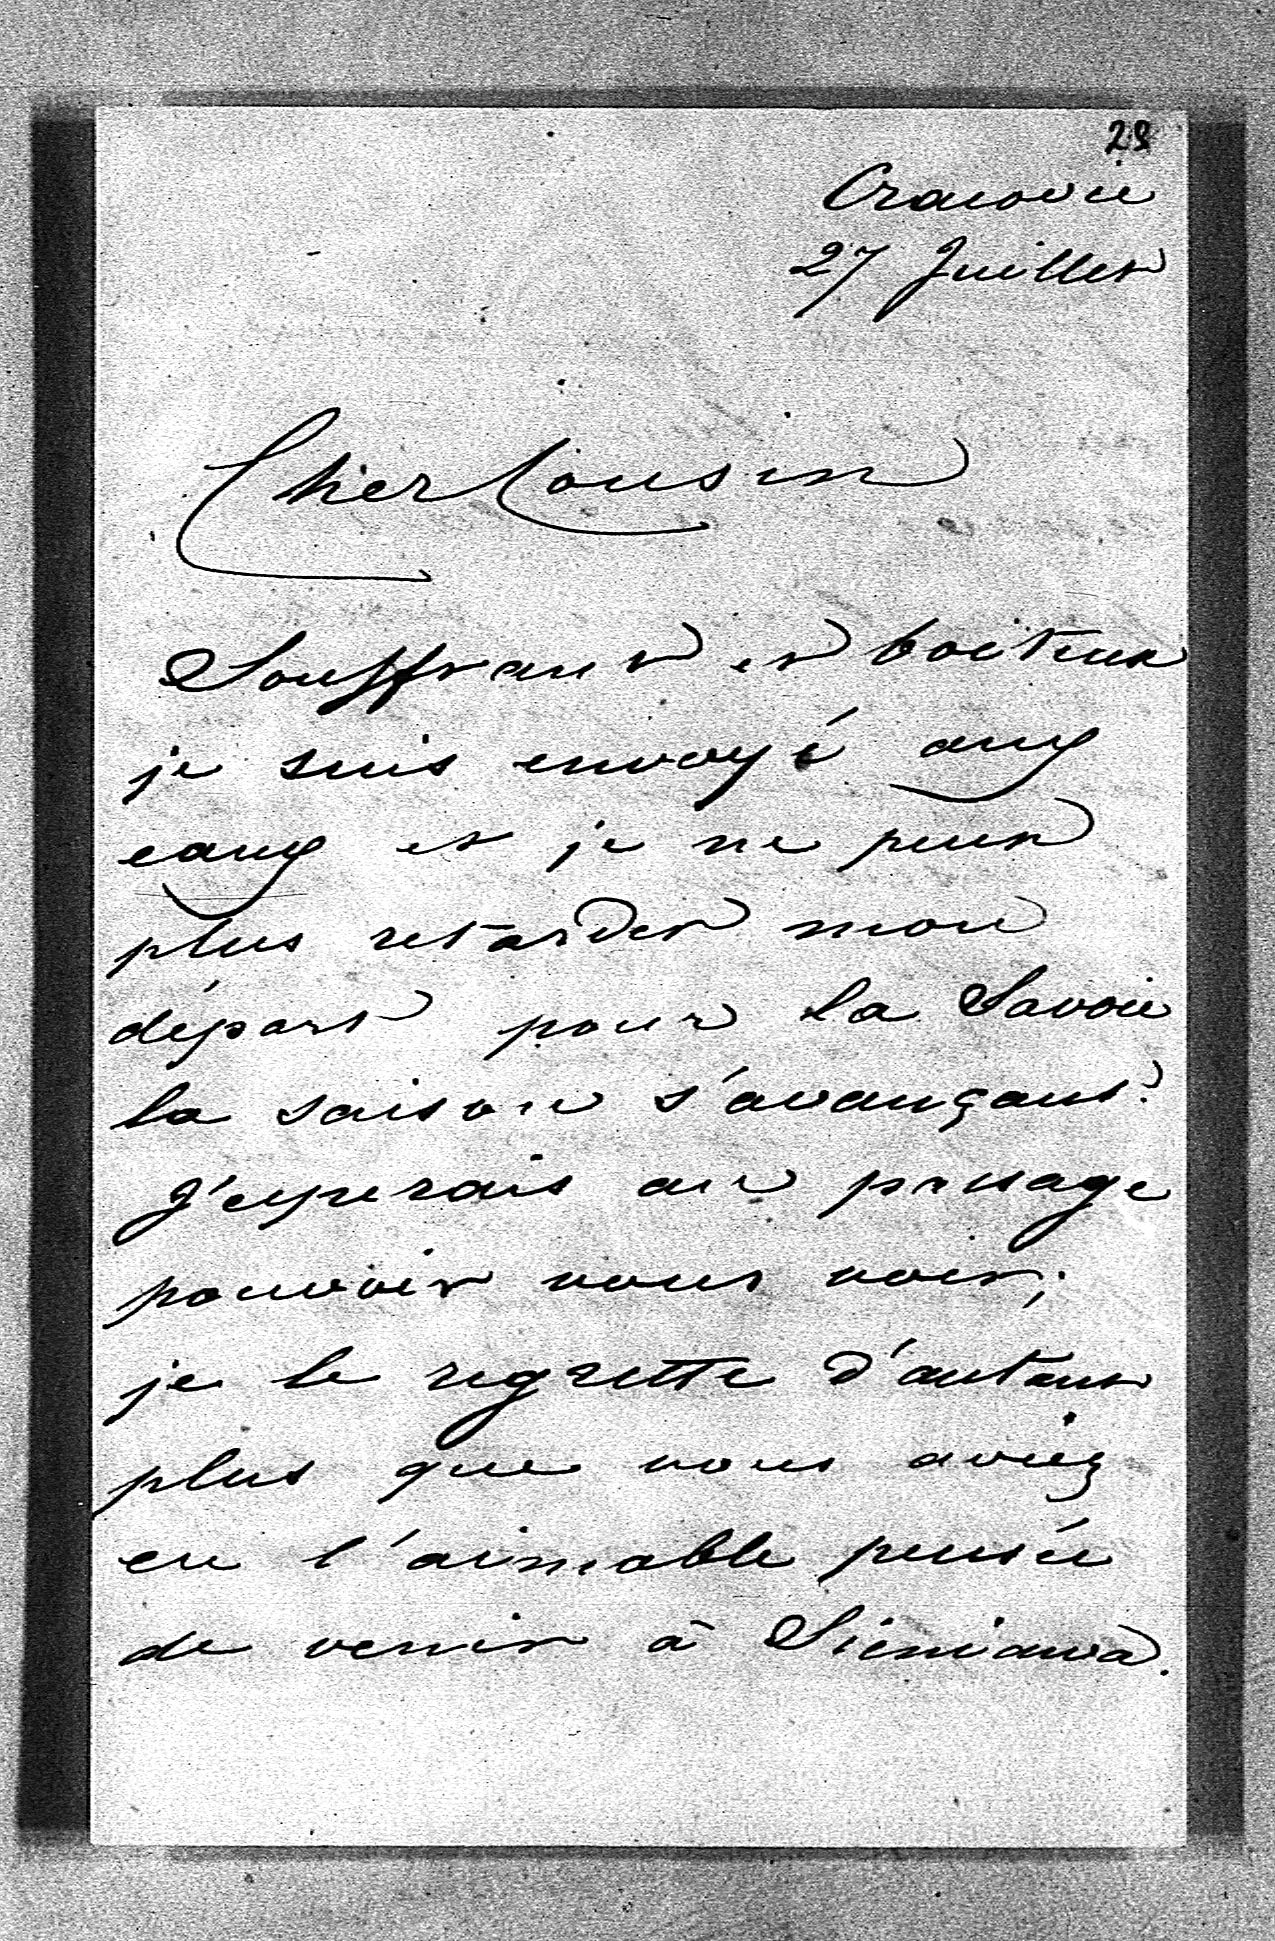 28
Cracovie
27 Juillet
Cher Cousin
Souffrant et boiteux
je suis envoyé aux
eaux et je ne peux
plus retarder mon
départ pour la Savoie
la saison s'avançant.
J'esperais au passage
pouvoir vous voir;
je le regrette d'autant
plus que vous aviez
eu l'aimable pensée
de venir à Sieniawa.